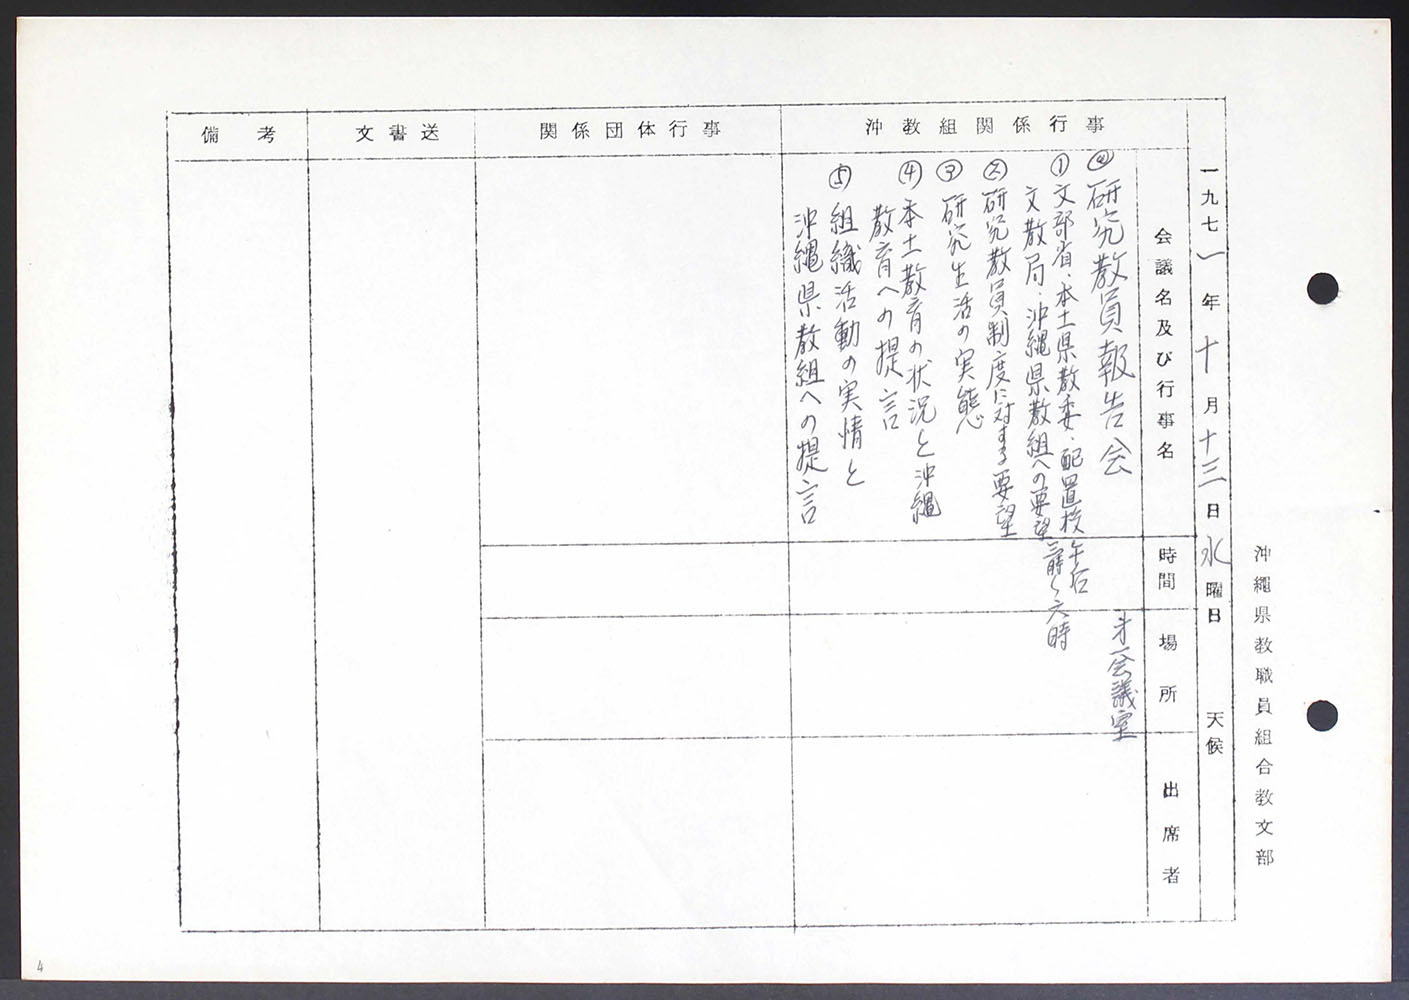 沖縄県教職員組合教文部
一九七一年十月十三日水曜日 天候
会議名及び行事名
時間
場所
出席者
沖教組関係行事
◎研究教員報告会
①文部省、本土県教委、配置校
文教局、沖縄県教組への要望
②研究教員制度に対する要望
③研究生活の実態
④本土教育の状況と沖縄
教育への提言
⑤組織活動の実情と
沖縄県教組への提言
午后
二時〜六時
才一会議室
関係団体行事
文書送
備考
4